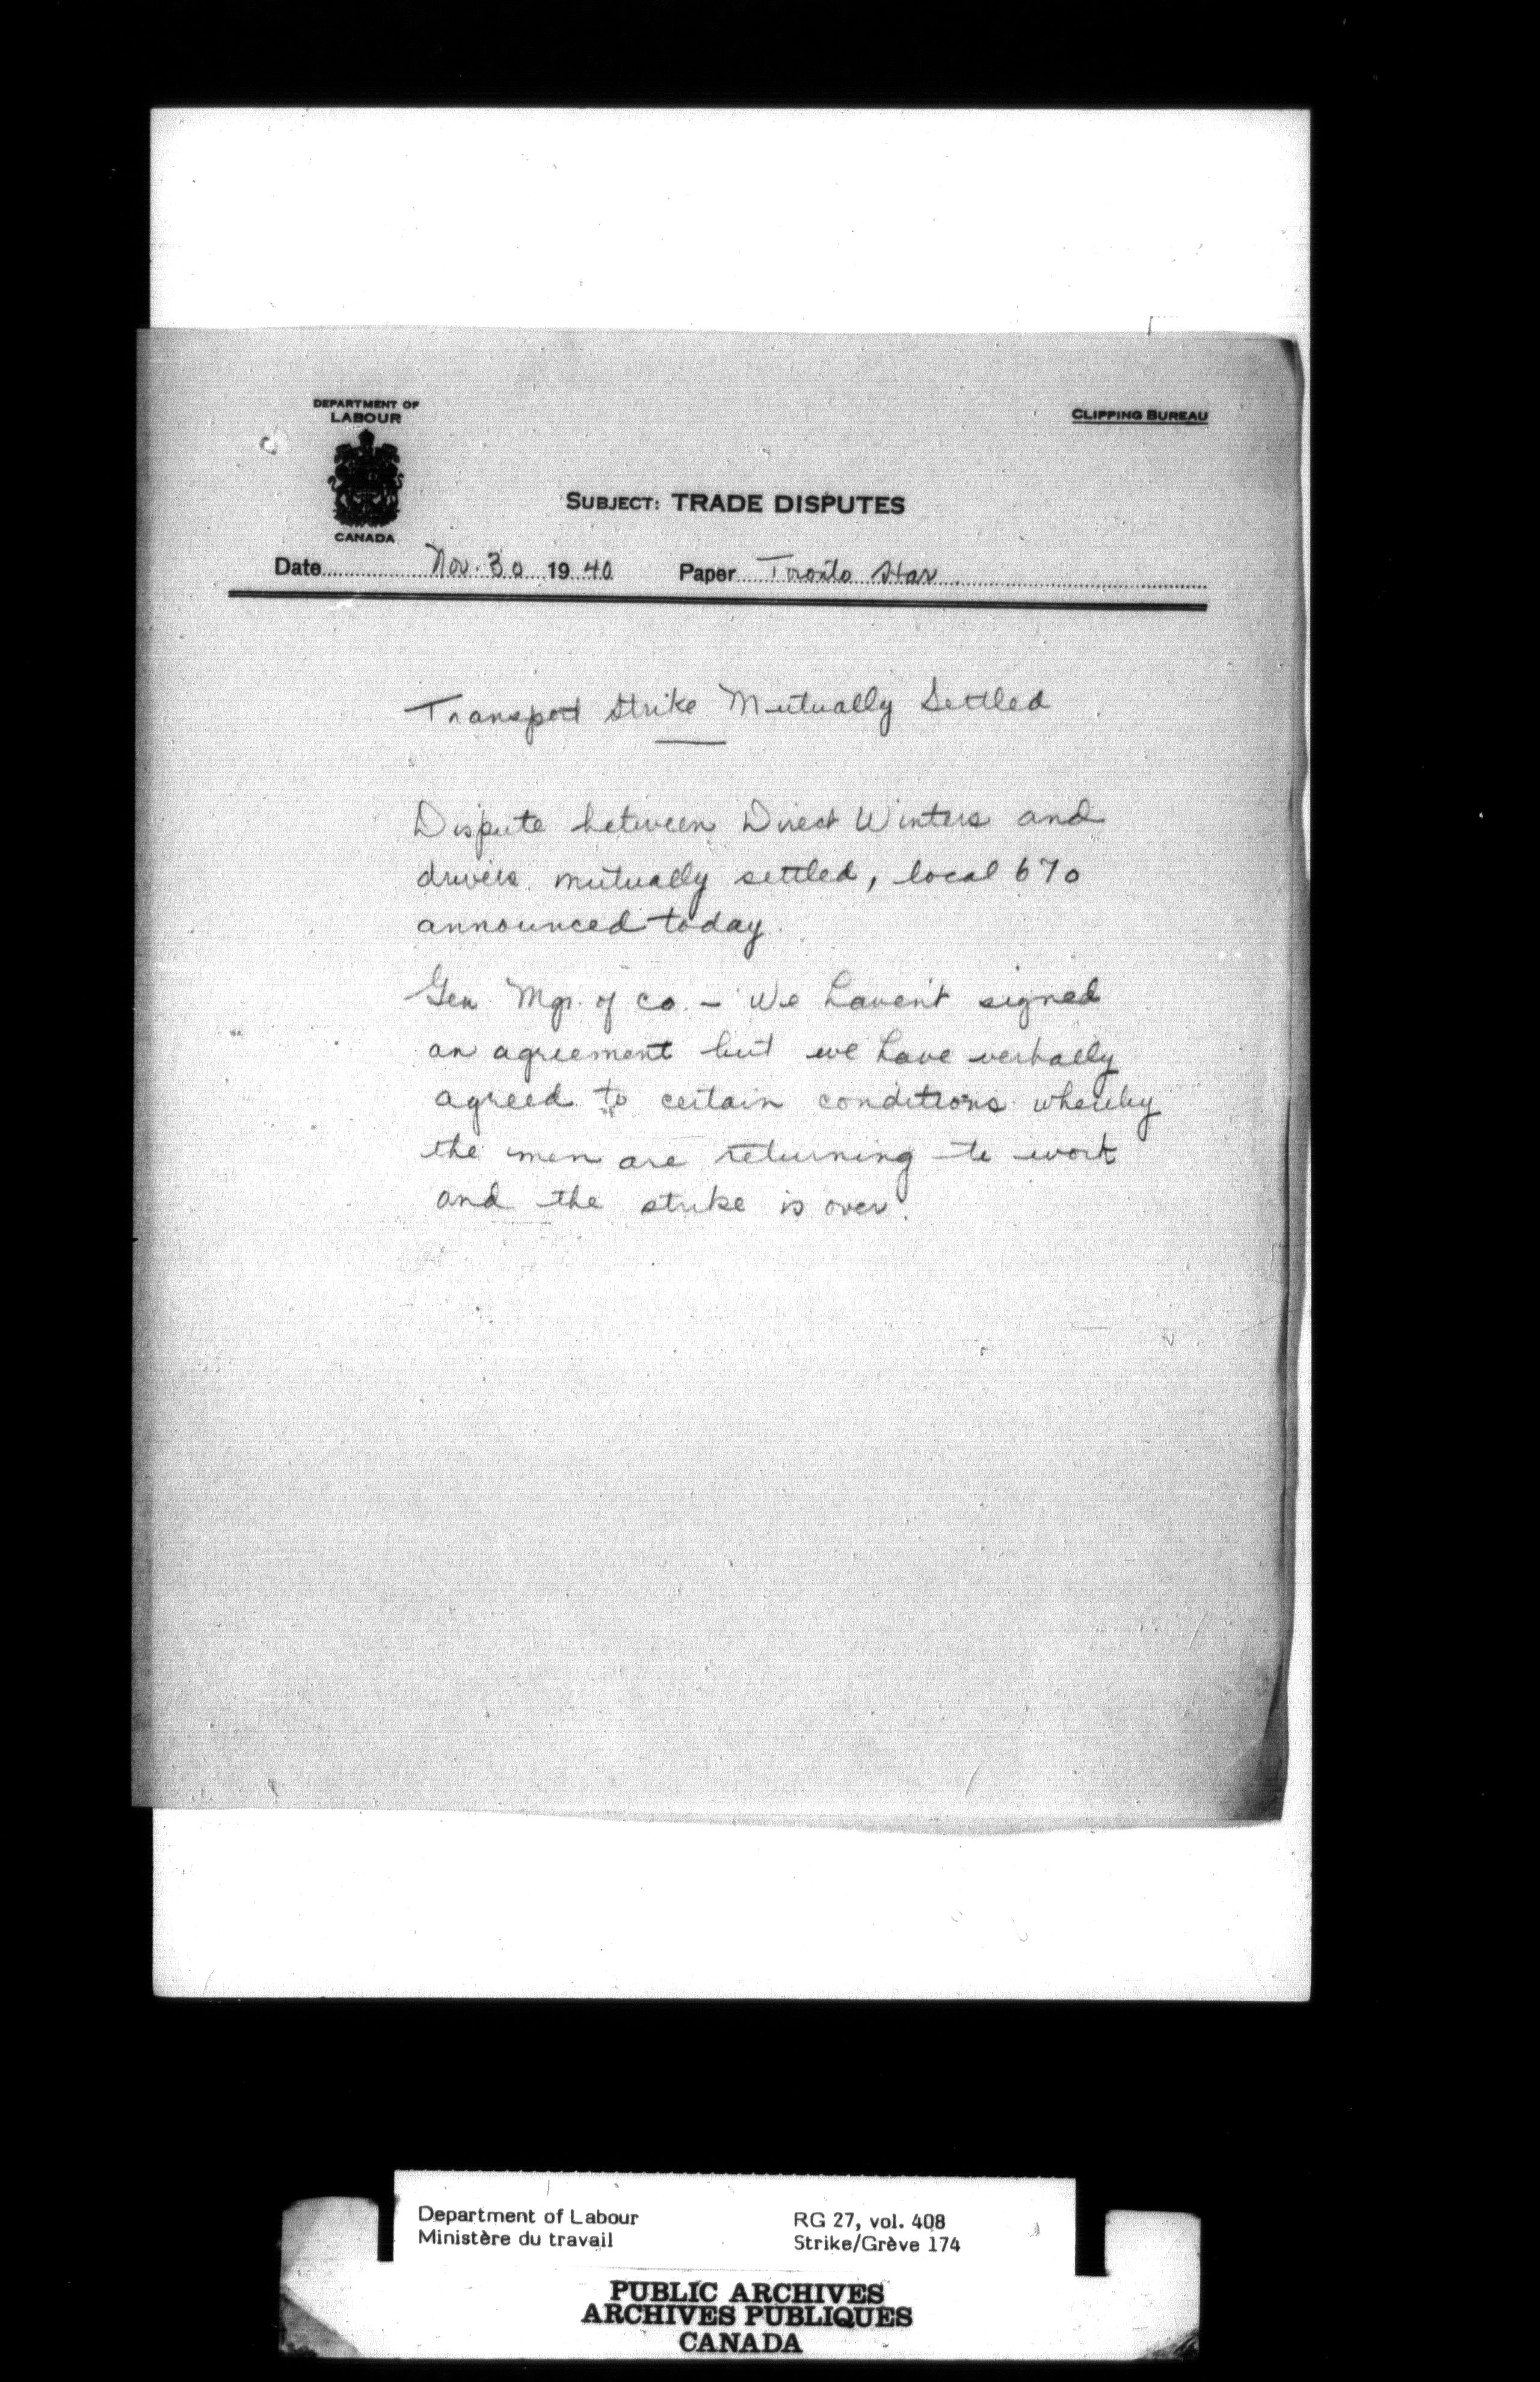 DEPARTMENT OF
LABOUR
CANADA
CLIPPING BUREAU
SUBJECT: TRADE DISPUTES
Date Nov. 30 1940 Paper Toronto Star
Transport Strike Mutually Settled
Dispute between Direct Winters and
drivers mutually settled, local 670
announced today.
Gen Mgr. of co. - We haven't signed
an agreement but we have verbally
agreed to certain conditions whereby
the men are returning to work
and the strike is over.
Department of Labour
Ministère du travail
RG 27, vol. 408
Strike/Grève 174
PUBLIC ARCHIVES
ARCHIVES PUBLIQUES
CANADA